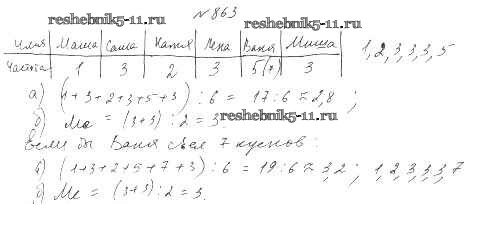 №863
reshebnik5-11.ru reshebnik5-11.ru
Имя Маша Саша Катя Лена Ваня Миша 1, 2, 3, 3, 3, 5
Частота 1 3 2 3 5(7) 3
а) (1+3+2+3+5+3) : 6 = 17 : 6 ≈ 2,8 ;
б) Me = (3+3) : 2 = 3.
reshebnik5-11.ru
Если бы Ваня съел 7 кусков :
(1+3+2+5+7+3) : 6 = 19 : 6 ≈ 3,2 ; 1, 2, 3, 3, 3, 7
Me = (3+3) : 2 = 3.